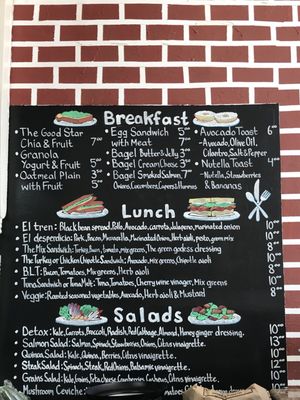 Breakfast
• The Good Star
Chia & Fruit 7⁰⁰
• Granola
Yogurt & Fruit 5⁰⁰
• Oatmeal Plain 3⁰⁰
with Fruit 5⁰⁰
• Egg Sandwich 5⁰⁰
with Meat 7⁰⁰
• Bagel Butter & Jelly 3⁰⁰
• Bagel Cream Cheese 3⁰⁰
• Bagel Smoked Salmon 7⁰⁰
Onions, Cucumbers, Capers & Hummus
• Avocado Toast 6⁰⁰
-Avocado, Olive Oil,
Cilantro, Salt & Pepper
• Nutella Toast 4⁰⁰
-Nutella, Strawberries
& Bananas
Lunch
El tren: Black bean spread, Pollo, Avocado, carrots, Jalapeno, marinated onion 10⁰⁰
El desperdicio: Pork, Bacon, Marinated Onion, Herb aioli, green mix
The Mix Sandwich: Turkey, Tomato, mix greens, The green goddess dressing
The Turkey or Chicken Chipotle Sandwich: Avocado, mix greens, Chipotle aioli
BLT: Bacon, Tomatoes, Mix greens, Herb aioli
Tuna Sandwich or Tuna Melt: Tuna, Tomatoes, Cherry wine vinegar, Mix greens
Veggie: Roasted seasonal vegetables, Avocado, Herb aioli & Mustard
Salads
Detox: Kale, Carrots, Broccoli, Radish, Red Cabbage, Almond, Honey ginger dressing. 10⁰⁰
Salmon Salad: Salmon, Spinach, Strawberries, Onions, Citrus vinaigrette. 13⁰⁰
Quinoa Salad: Kale, Quinoa, Berries, Citrus vinaigrette. 10⁰⁰
Steak Salad: Steak, Spinach, Red Onions, Balsamic vinaigrette. 12⁰⁰
Grains Salad: Kale, Grains, Feta cheese, Cranberries, Cashews, Citrus vinaigrette. 10⁰⁰
Mushroom Ceviche: